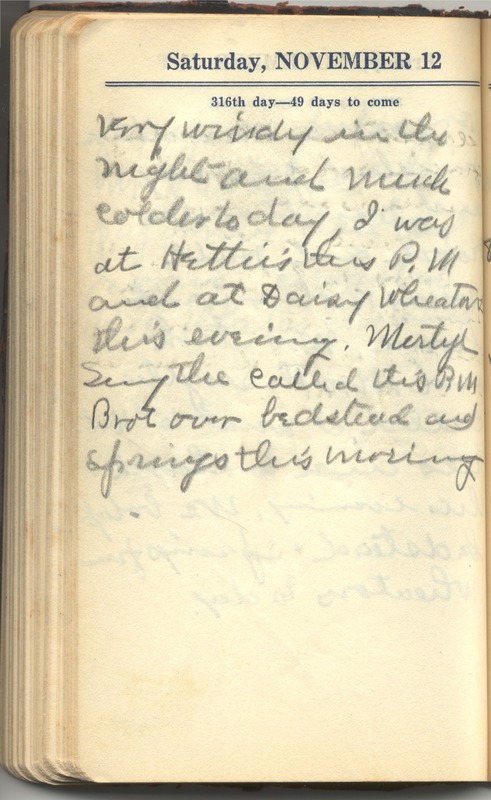 Saturday, NOVEMBER 12
316th day—49 days to come
Very windy in the
night and much
colder to day, I was
at Hettie's this P.M
and at Daisy Wheaton
this evening. Mertyl
Smythe called this P.M
Brot over bedstead and
springs this morning